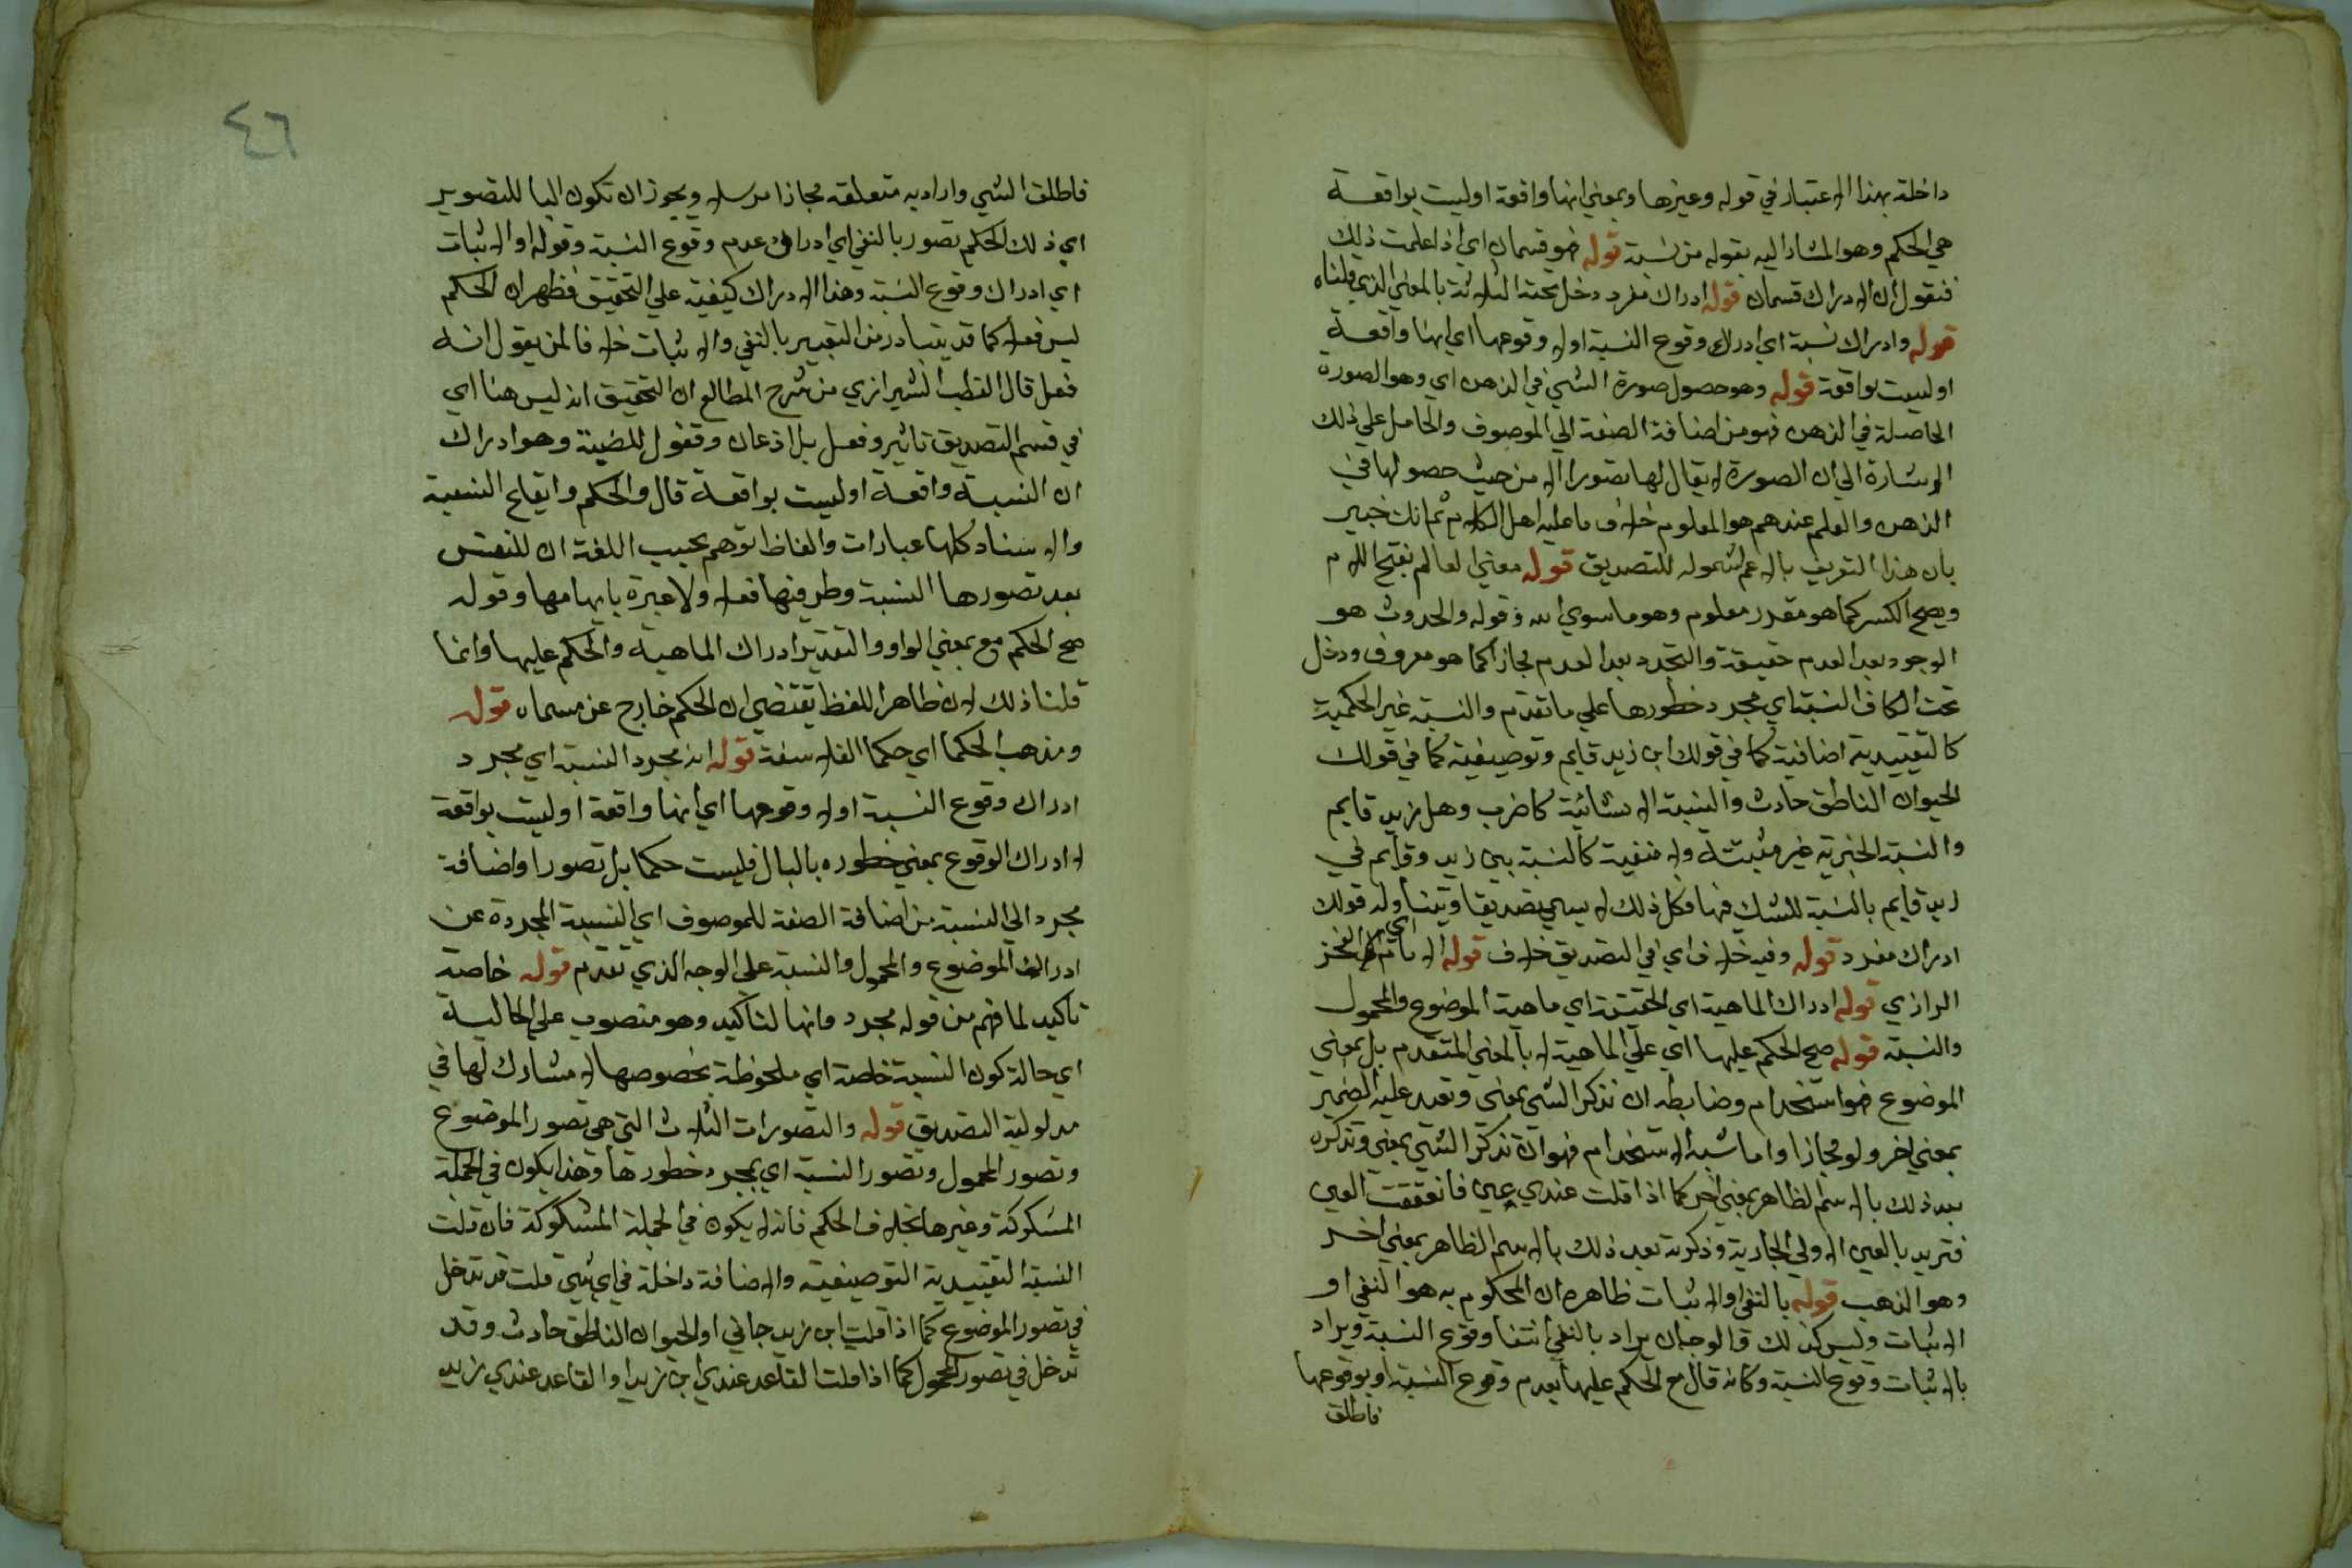 داخلة بهذا الاعتبار في قوله وغيرها وبمعني انها واقعة اوليست بواقعة
هي الحكم وهو المشار اليه بقوله من نسبة قوله فهو قسمان اي اذا علمت ذلك
فنقول ان الادراك قسمان قوله ادراك مفرد دخل تحته الثلاثة بالمعني الذي قلناه
قوله وادراك نسبة اي ادراك وقوع النسبة اولا وقوعها اي انها واقعة
اوليست بواقعة قوله وهو حصول صورة الشي في الذهن اي وهو الصورة
الحاصلة في الذهن فهو من اضافة الصفة الي الموصوف والحامل علي ذلك
الاشارة الي ان الصورة لا يقال لها تصورا الا من حيث حصولها في
الذهن والعلم عندهم هو المعلوم خلاف ما عليه اهل الكلام ثم انك خبير
بان هذا التعريف بالاعم لشموله للتصديق قوله معني العالم بفتح اللام
ويصح الكسر كما هو مقدر معلوم وهو ما سوي الله وقوله والحدوث هو
الوجود بعد العدم حقيقة والتجدد بعد العدم مجازا كما هو معروف ودخل
تحت الكاف النسبة اي مجرد خطورها علي ما تقدم والنسبة غير الحكمية
كالتقييدية اضافية كما في قولك ابن زيد قايم وتوصيفية كما في قولك
الحيوان الناطق حادث والنسبة الانشائية كاضرب وهل زيد قايم
والنسبة الخبرية غير مثبتة ولا منفية كالنسبة بين زيد وقايم في
زيد قايم بالنسبة للشك فيها وكل ذلك لا يسمي تصديقا ويتناوله قولك
ادراك مفرد قوله وفيه خلاف اي في التصديق خلاف قوله الامام اي الفخر
الرازي قوله ادراك الماهية اي الحقيقة اي ماهية الموضوع والمحمول
والنسبة قوله صح الحكم عليها اي علي الماهية لا بالمعني المتقدم بل بمعني
الموضوع فهو استخدام وضابطه ان تذكر الشي بمعني وتعيد عليه الضمير
بمعني اخر ولو مجازا واما شبه الاستخدام فهو ان تذكر الشي بمعني وتذكره
بعد ذلك بالاسم الظاهر بمعني اخر كما اذا قلت عندي عين فانفقت العين
فتريد بالعين الاولي الجارية وذكرته بعد ذلك بالاسم الظاهر بمعني اخر
وهو الذهب قوله بالنفي او الاثبات ظاهره ان المحكوم به هو النفي او
الاثبات وليس كذلك فالوجه ان يراد بالنفي انتفا وقوع النسبة ويراد
بالاثبات وقوع النسبة وكانه قال مع الحكم عليها بعدم وقوع النسبة او بوقوعها
فاطلق
٤٦
فاطلق الشي واراد به متعلقه مجازا مرسلا ويجوز ان تكون البا للتصوير
اي ذلك الحكم تصور بالنفي اي ادراك عدم وقوع النسبة وقوله او الاثبات
اي ادراك وقوع النسبة وهذا الادراك كيفية علي التحقيق فظهر ان الحكم
ليس فعلا كما قد يتبادر من التعبير بالنفي والاثبات خلافا لمن يقول انه
فعل قال القطب الشيرازي من شرح المطالع ان التحقيق انه ليس هنا اي
في قسم التصديق تاثير وفعل بل اذعان وقبول للنسبة وهو ادراك
ان النسبة واقعة اوليست بواقعة قال والحكم وايقاع النسبة
والاسناد كلها عبارات والفاظ توهم بحسب اللغة ان للنفس
بعد تصورها النسبة وطرفيها فعلا ولا عبرة بايهامها وقوله
صح الحكم مع بمعني الواو والتقدير ادراك الماهية والحكم عليها وانما
قلنا ذلك لان ظاهر اللفظ يقتضي ان الحكم خارج عن مسماه قوله
ومذهب الحكما اي حكما الفلاسفة قوله انه مجرد النسبة اي مجرد
ادراك وقوع النسبة اولا وقوعها اي انها واقعة اوليست بواقعة
لا ادراك الوقوع بمعني خطوره بالبال فليست حكما بل تصورا واضافة
مجرد الي النسبة من اضافة الصفة للموصوف اي النسبة المجردة عن
ادراك الموضوع والمحمول والنسبة علي الوجه الذي تقدم قوله خاصة
تاكيد لما فهم من قوله مجرد وانها لتاكيد وهو منصوب علي الحالية
اي حالة كون النسبة خاصة اي ملحوظة بخصوصها لا مشارك لها في
مدلولية التصديق قوله والتصورات الثلاث التي هي تصور الموضوع
وتصور المحمول وتصور النسبة اي بمجرد خطورها وهذا يكون في الجملة
المشكوكة وغيرها بخلاف الحكم فانه لا يكون في الجملة المشكوكة فان قلت
النسبة التقييدية التوصيفية والاضافة داخلة في اي شي قلت قد تدخل
في تصور الموضوع كما اذا قلت ابن زيد جاني او الحيوان الناطق حادث وقد
تدخل في تصور المحمول كما اذا قلت القاعد عندي ابن زيد او القاعد عندي زيد